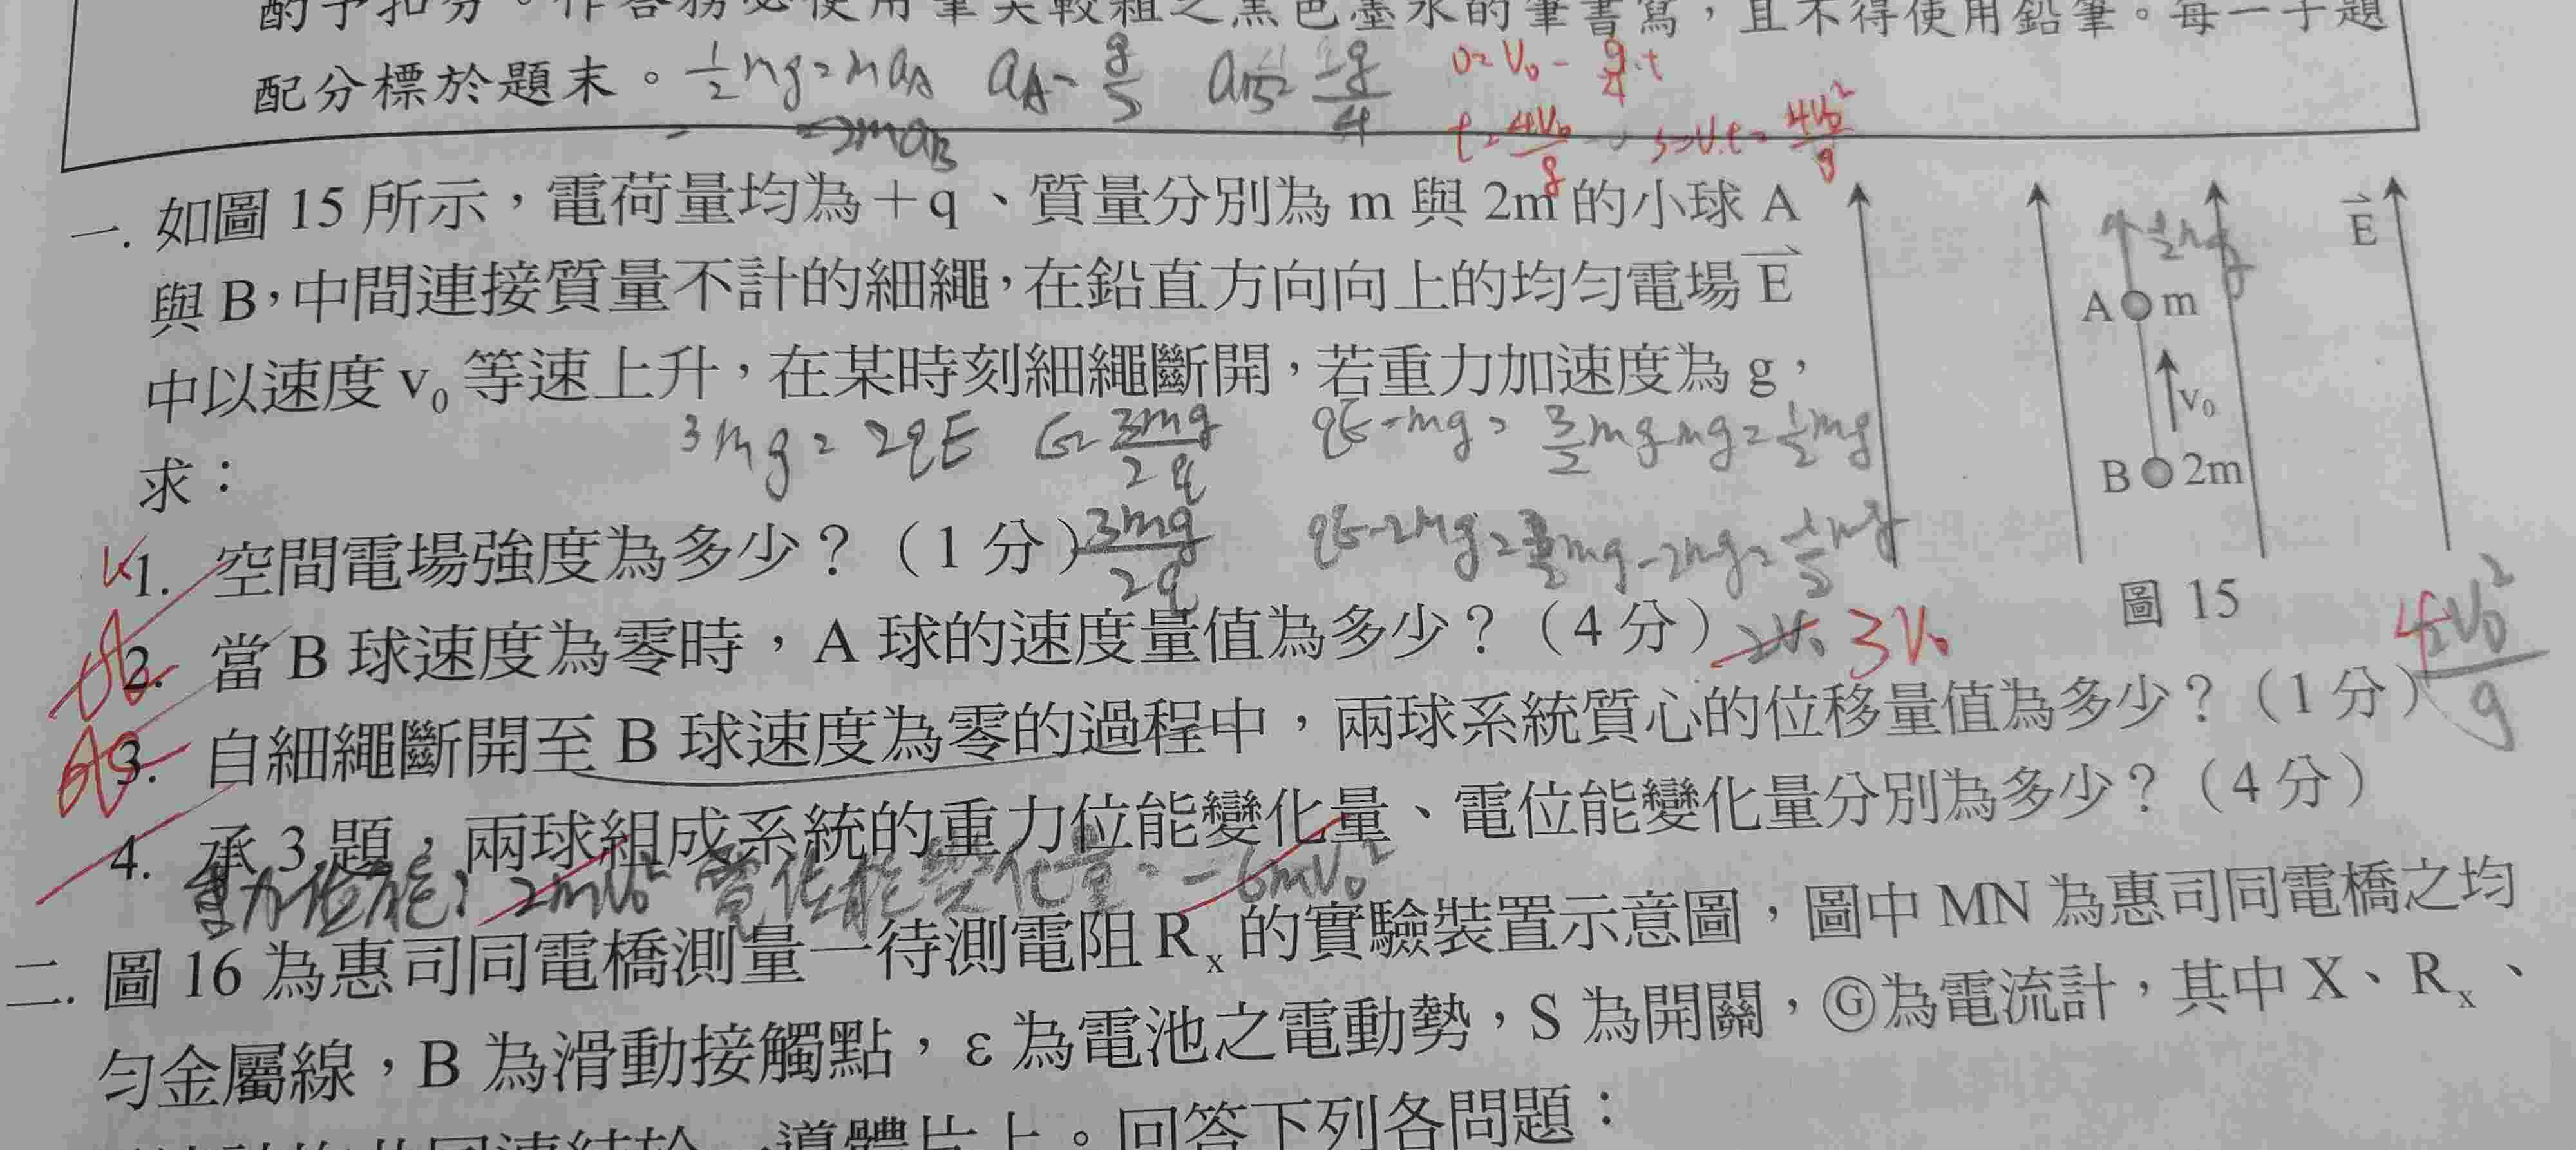 酌予扣分。作答務必使用筆尖較粗之黑色墨水的筆書寫，且不得使用鉛筆。每一子題
配分標於題末。
½mg=ma_A
=2ma_B
0=v₀-g/4·t
t=4v₀/g
s=v.t=4v₀²/g
一. 如圖 15 所示，電荷量均為＋q、質量分別為 m 與 2m 的小球 A
與 B，中間連接質量不計的細繩，在鉛直方向向上的均勻電場 E⃗
中以速度 v₀ 等速上升，在某時刻細繩斷開，若重力加速度為 g，
求：
3mg=2qE E=3mg/2q
qE-mg=3/2mg-mg=½mg
1. 空間電場強度為多少？（1 分）3mg/2q
2. 當 B 球速度為零時，A 球的速度量值為多少？（4 分）2v₀ 3v₀
3. 自細繩斷開至 B 球速度為零的過程中，兩球系統質心的位移量值為多少？（1 分）
4. 承 3.題，兩球組成系統的重力位能變化量、電位能變化量分別為多少？（4 分）
重力位能：2mv₀² 電位能變化量：-6mv₀²
E⃗
A m
v₀
B 2m
圖 15
二. 圖 16 為惠司同電橋測量一待測電阻 Rₓ 的實驗裝置示意圖，圖中 MN 為惠司同電橋之均
勻金屬線，B 為滑動接觸點，ε 為電池之電動勢，S 為開關，Ⓖ為電流計，其中 X、Rₓ、
導體片上。回答下列各問題：